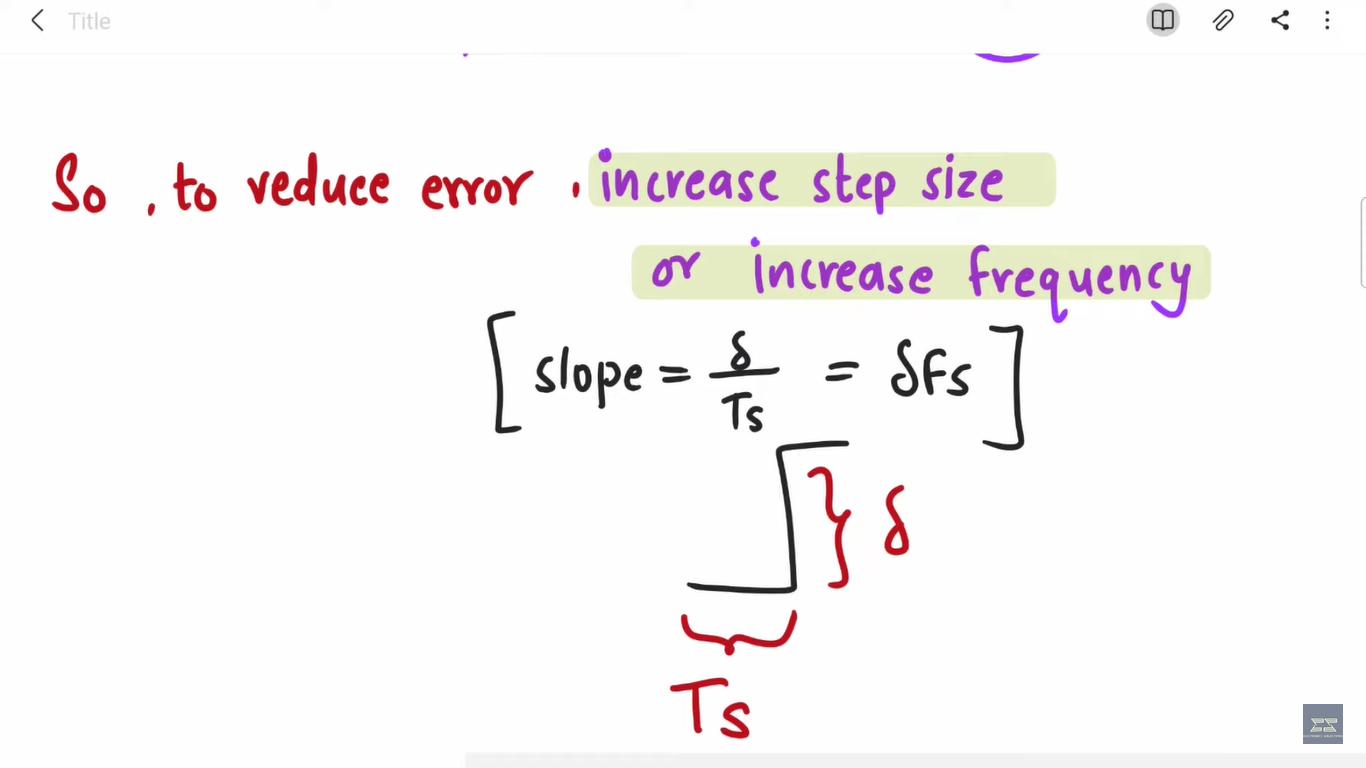 Title
So , to reduce error . increase step size
or increase frequency
[ slope = δ/Ts = δFs ]
} δ
Ts